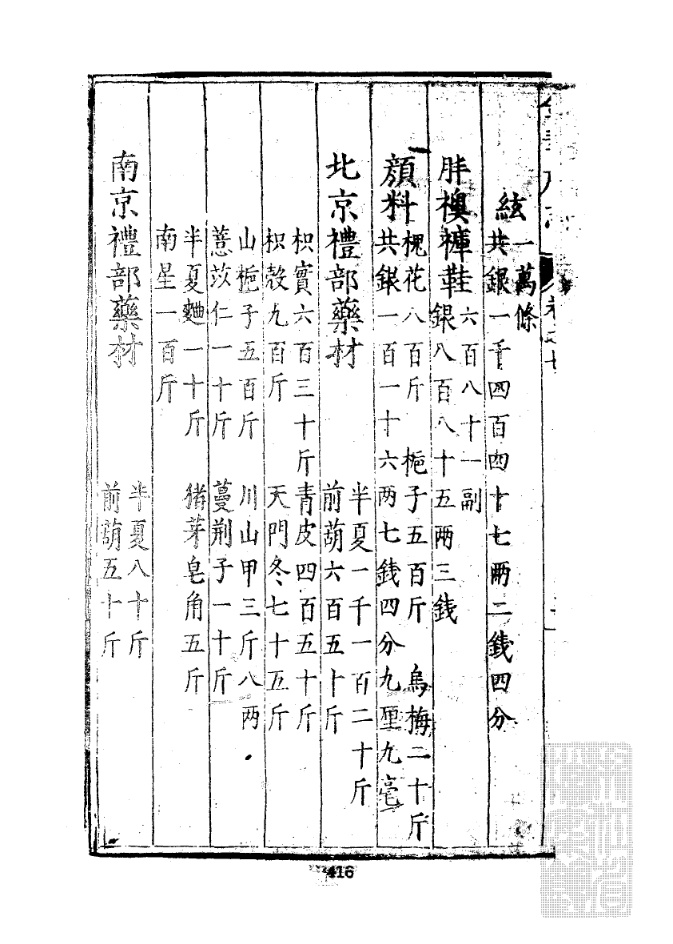 絃一萬條
共銀一千四百四十七兩二錢四分
胖襖褲鞋六百八十一副
銀八百八十五兩三錢
顏料槐花八百斤 梔子五百斤 烏梅二十斤
共銀一百一十六两七錢四分九厘九毫
北京禮部藥材 半夏一千一百二十斤
前葫六百五十斤
枳實六百三十斤 青皮四百五十斤
枳殼九百斤 天門冬七十五斤
山梔子五百斤 川山甲三斤八两
薏苡仁一十斤 蔓荆子一十斤
半夏麯一十斤 猪芽皂角五斤
南星一百斤
南京禮部藥材 半夏八十斤
前葫五十斤
416